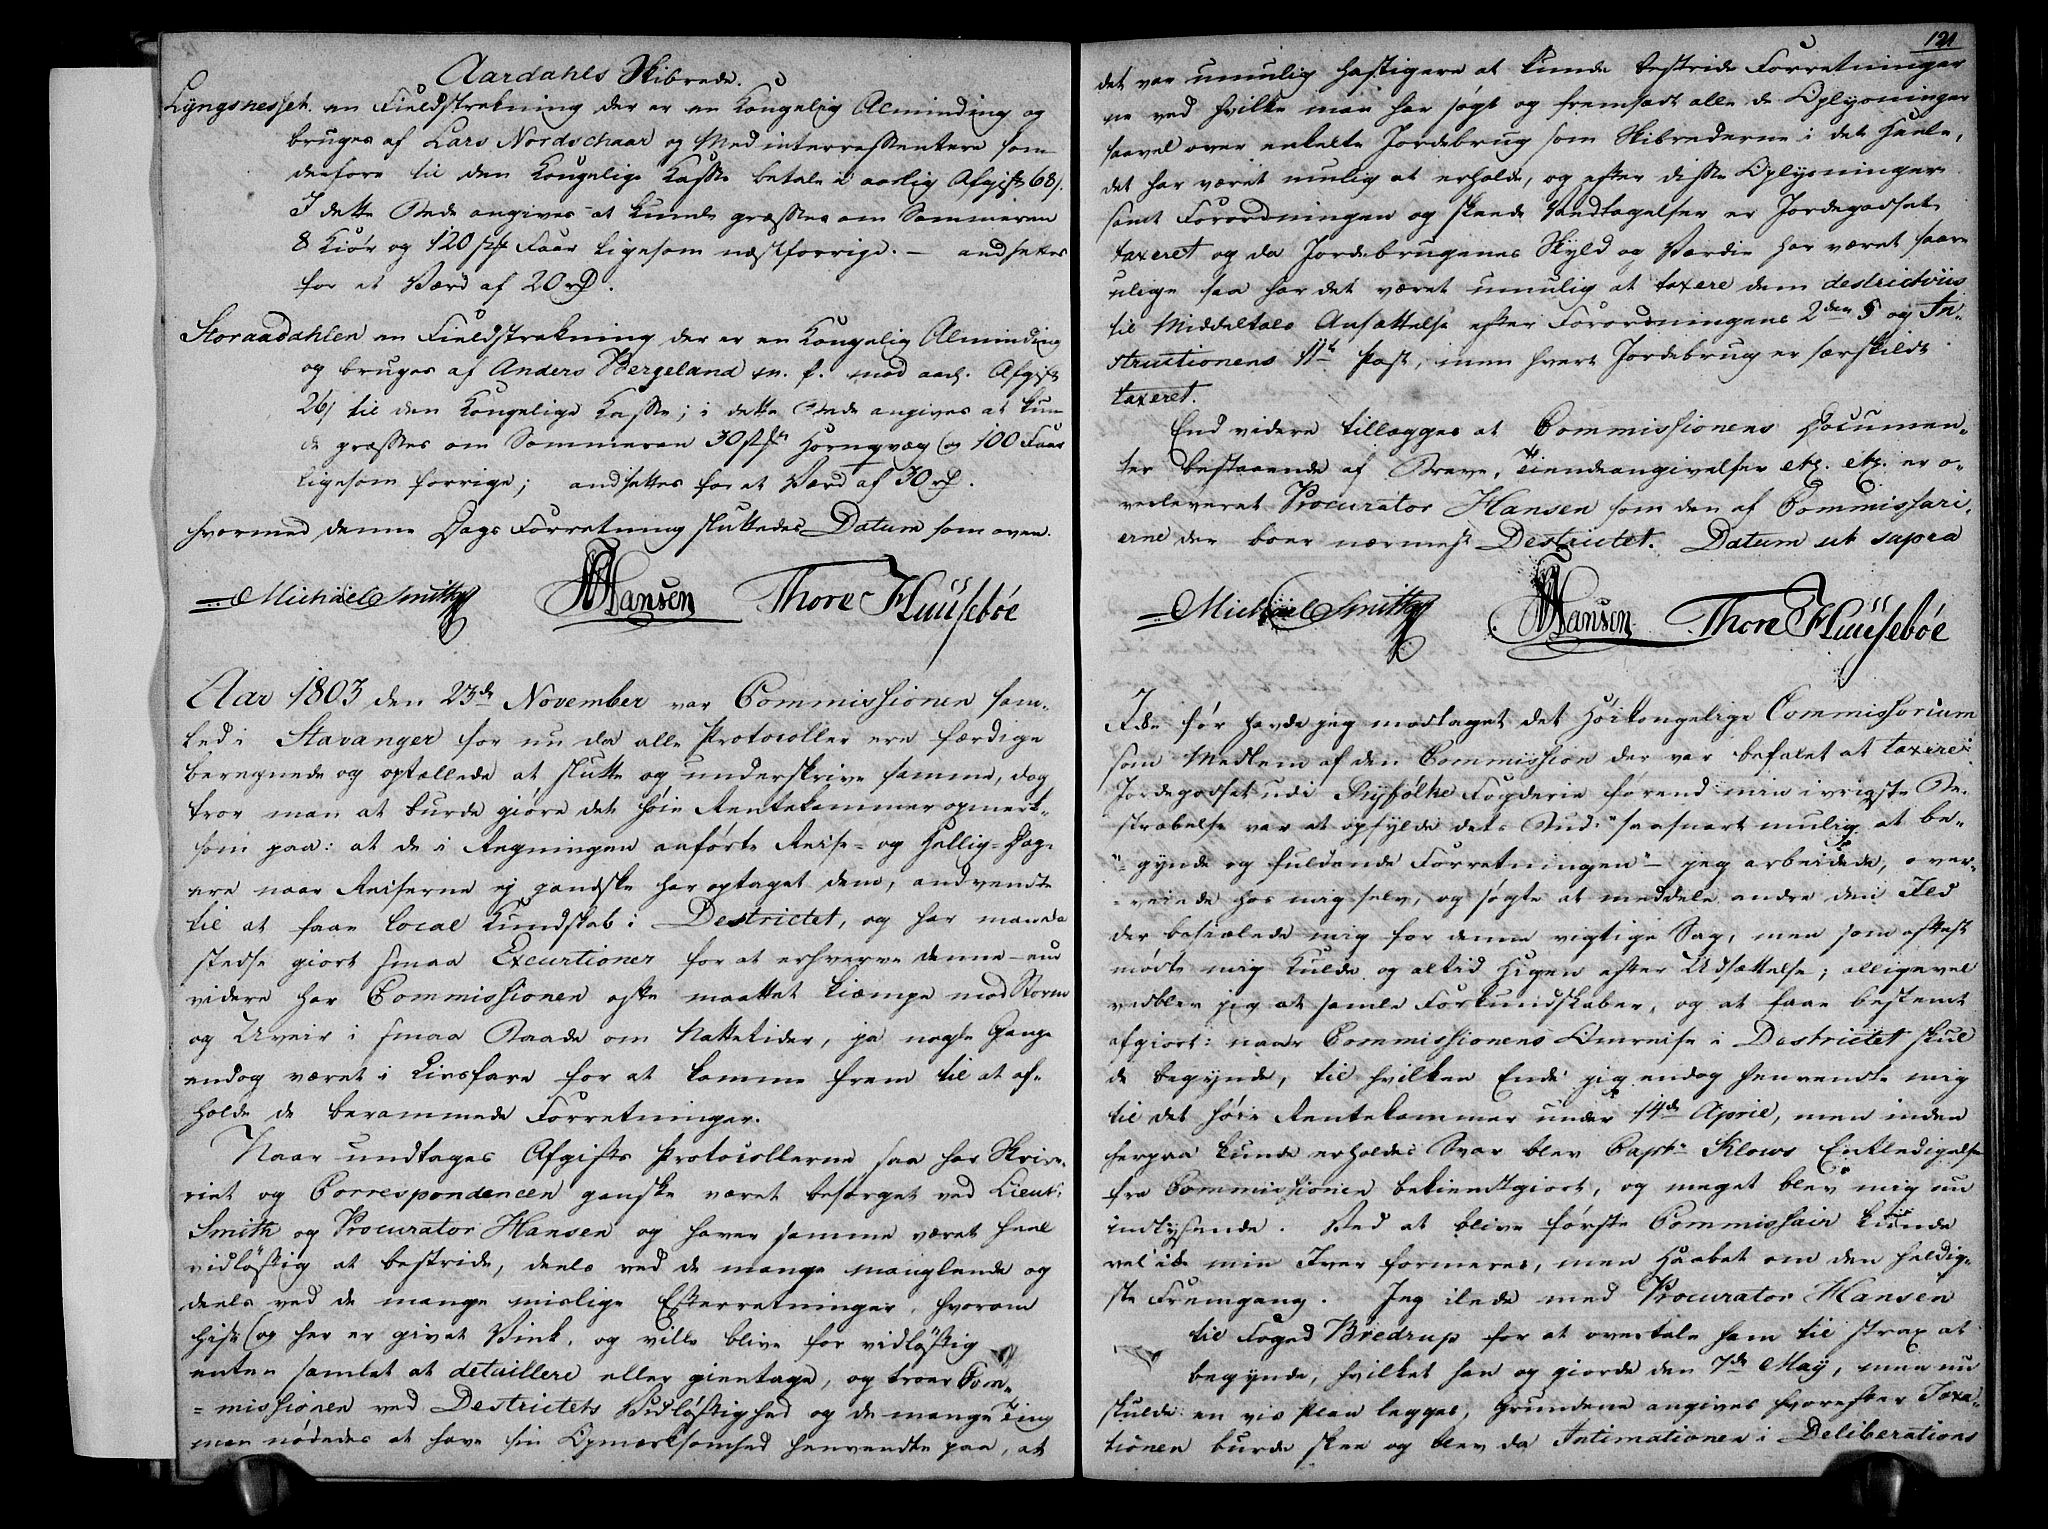 Aardahls Skibrede.
Lyngsnesset. en Fieldstrækning der er en Kongelig Alminding og
bruges af Lars Nordschaar og Medinterressentere som
derfore til den Kongelige Kasse betale i aarlig Afgift 68/.
I dette Stæde angives at kunde græsses om Sommeren
8 Kiör og 120 st Faar ligesom næstforrige. — andsettes
for et Værd af 20 rd.
Storaadahlen en Fieldstrækning der er en Kongelig Alminding
og bruges af Anders Bergeland m. f. mod aarl. Afgift
26/ til den Kongelige Kasse; i dette Stæde angives at kun-
de græsses om Sommeren 30 st Hornqvæg og 100 Faar
ligesom forrige; andsettes for et Værd af 30 rd.
hvormed denne Dags Forretning sluttedes Datum som oven.
Michael Smith Hansen Thore Huusebøe
Aar 1803 den 23de November var Commissionen sam-
led i Stavanger for nu da alle Protocoller ere færdige
beregnede og optællede at slutte og underskrive samme, dog
troer man at burde giöre det höie Rentekammer opmærk-
som paa: at de i Regningen anförte Reise- og Hellig-Dage
ere naar Reiserne ej gandske har optaget dem, andvendte
til at faae local Kundskab i Destrictet, og har man da
stedse giort smaa Excurtioner for at erhverve denne - end
videre har Commissionen ofte maattet kiæmpe mod Storm
og Uveir i smaa Baade om Nattetider, ja nogle Gange
endog været i Livsfare for at komme frem til at af-
holde de berammede Forretninger.
Naar undtages Afgifts Protocollerne saa har Skrive-
riet og Correspondencen ganske været besörget ved Lieut:
Smith og Procurator Hansen og haver samme været heel
vidlöftig at bestride, deels ved de mange manglende og
deels ved de mange mislige Efterretninger, hvorom
hist og her er givet Vink, og ville blive for vidlöftig
enten samlet at detaillere eller gientage, og troer Com-
missionen ved Destrictets Vidlöftighed og de mange Ting
man nödedes at have sin Opmærksomhed henvendte paa, at
121
det var umulig hastigere at kunde bestride Forretninger
ne ved hvilke man har sögt og fremsadt alle de Oplysninger
saavel over enkelte Jordebrug som Skibrederne i det heele,
det har været mulig at erholde, og efter disse Oplysninger
samt Forordningen og skeede Vedtagelser er Jordegodset
taxeret og da Jordebrugenes Skyld og Værdie har været saare
ulige saa har det været umulig at taxere dem destrictviis
til Middeltals Ansættelse efter Forordningens 2den § og In-
structionens 11te Post, men hvert Jordebrug er særskildt
taxeret.
End videre tillægges at Commissionens Documen-
ter bestaaende af Breve, Tiendeangivelser etc. etc. er o-
verleveret Procurator Hansen som den af Commissari-
erne der boer nærmest Destrictet. Datum ut supra
Michael Smith Hansen Thore Huusebøe
Ikke för havde jeg modtaget det Höikongelige Commissorium
som Medlem af den Commission der var befalet at taxere
Jordegodset udi Ryfölke Fogderie förend min ivrigste Be-
stræbelse var at opfylde dets Bud: "saasnart mulig at be-
"gynde og fuldende Forretningen" — jeg arbeidede, over-
veiede hos mig selv, og sögte at meddele andre den Ild
der besiælede mig for denne vigtige Sag, men som oftest
mödte mig Kulde og altid Higen efter Udsættelse; alligevel
vedblev jeg at samle Forkundskaber, og at faae bestemt
afgiort: naar Commissionens Omreise i Destrictet skul-
de begynde, til hvilken Ende jeg endog henvendte mig
til det höie Rentekammer under 14de April, men inden
herpaa kunde erholdes Svar blev Capt: Klows Entledigelse
fra Commissionen bekiendtgiort, og meget blev mig nu
indlysende. Ved at blive förste Commissair kunde
vel ikke min Iver formeres, men Haabet om den heldig-
ste Fremgang. Jeg ilede med Procurator Hansen
til Foged Bredrup for at overtale ham til strax at
begynde, hvilket han og giorde den 7de May, men nu
skulde en vis Plan lægges, Grundene angives hvorefter Taxa-
tionen burde skee og blev da Intimationen i Deliberations